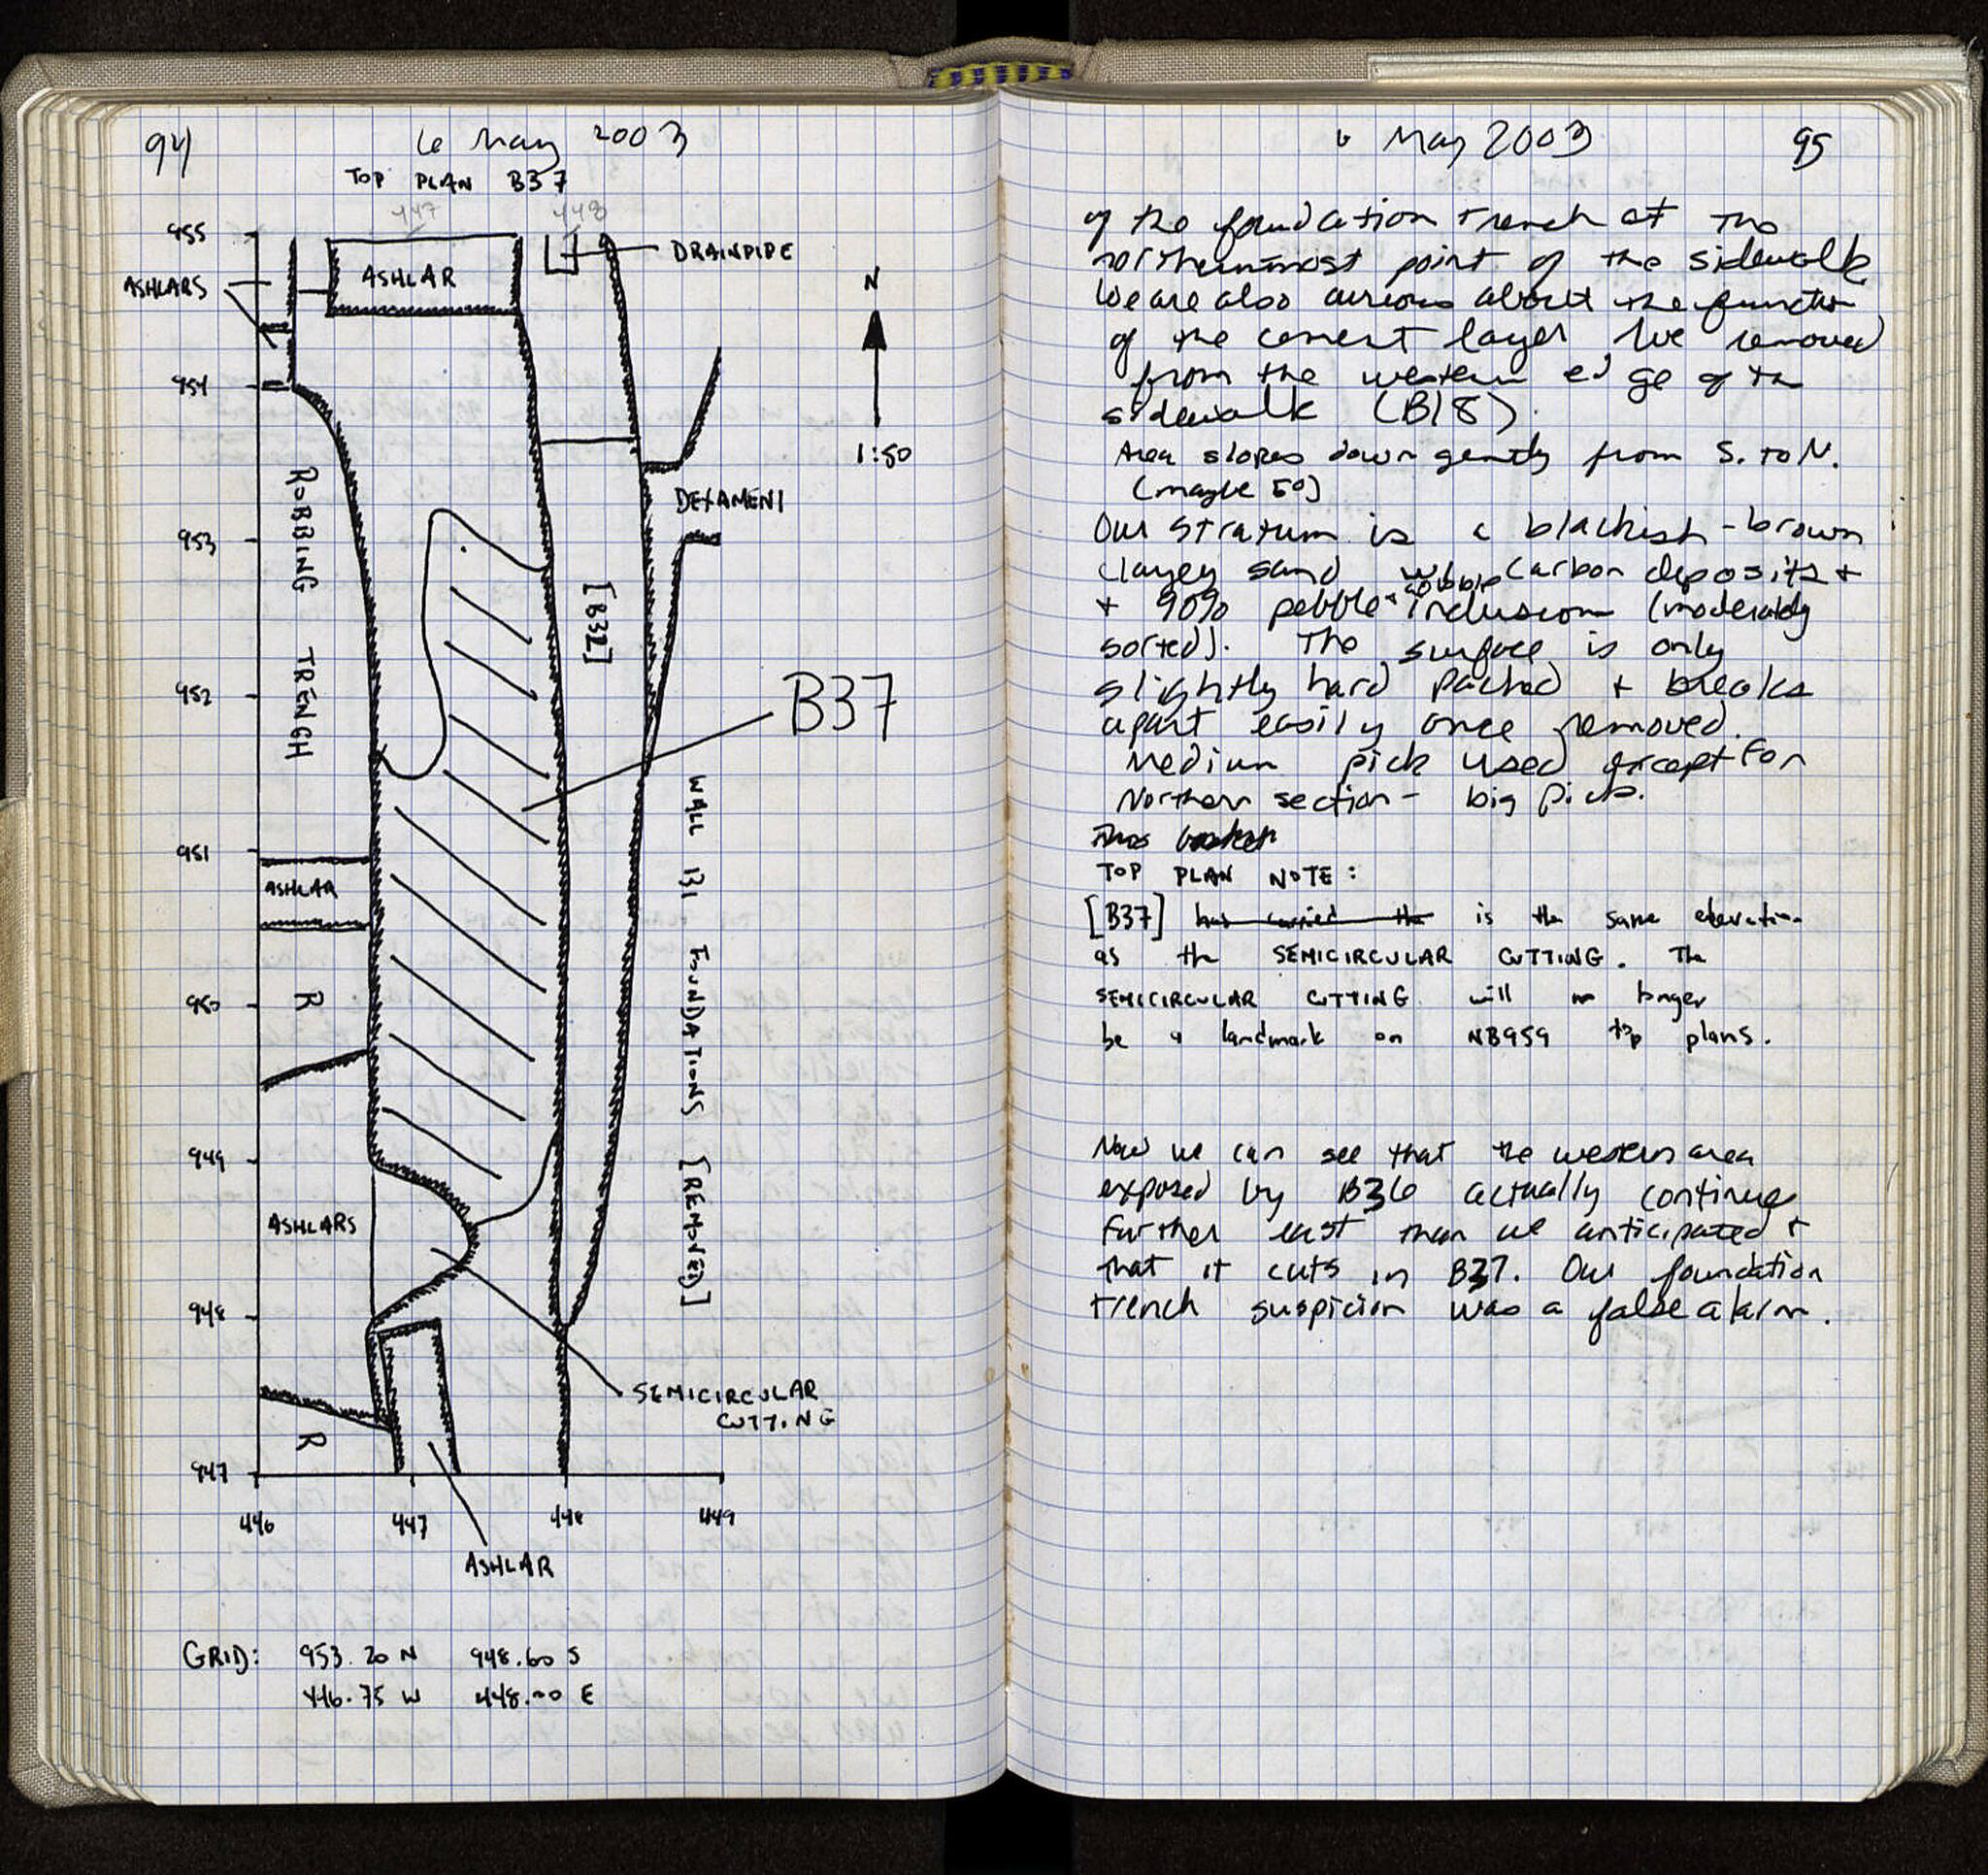 94
6 May 2003
TOP PLAN B37
447 448
955
ASHLARS
ASHLAR
DRAINPIPE
N
954
1:50
ROBBING TRENCH
DEXAMENI
953
[B32]
952
B37
WALL B1 FOUNDATIONS [REMOVED]
951
ASHLAR
950
R
949
ASHLARS
948
SEMICIRCULAR
CUTTING
R
947
446 447 448 449
ASHLAR
GRID: 953.20 N 948.60 S
446.75 W 448.00 E
6 May 2003
95
of the foundation trench at the
northernmost point of the sidewalk
We are also curious about the function
of the cement layer we removed
from the western edge of the
sidewalk (B18).
Area slopes down gently from S. to N.
(maybe 5°)
Our stratum is a blackish-brown
clayey sand w/ carbon deposits +
+ 90% pebble + cobble inclusions (moderately
sorted). The surface is only
slightly hard packed + breaks
apart easily once removed.
Medium pick used except for
Northern section - big pick.
This basket
TOP PLAN NOTE:
[B37] has carried the is the same elevation
as the SEMICIRCULAR CUTTING. The
SEMICIRCULAR CUTTING will no longer
be a landmark on NB959 top plans.
Now we can see that the western area
exposed by B36 actually continues
further east than we anticipated +
that it cuts in B37. Our foundation
trench suspicion was a false alarm.